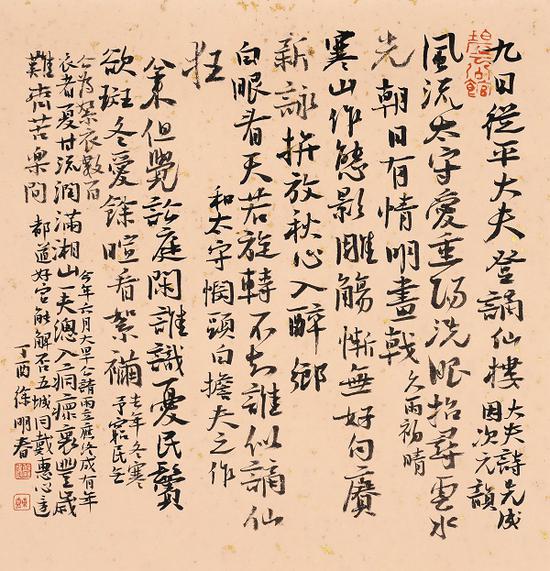 九日從平大夫登謫仙樓
大夫詩先成
因次元韻
風流太守愛重陽洗眼招尋雲水
光朝日有情明畫戟
久雨初晴
寒山作態影雕觴慚無好句賡
新詠拚放秋心入醉鄉
白眼看天若旋轉不知誰似謫仙
狂
和太守惘頭白擔夫之作
來但覺訟庭閑誰識憂民鬢
欲斑冬愛餘暄看絮襺
去年冬寒
予窮民無
公為絮衣數百
衣者夏甘流潤滿湘山
今年六月大旱公請雨立應遂成有年
一夫總入痌瘝裏豐歲
難齊苦樂間
都道好官能解否五城同戴惠心
丁酉徐明春